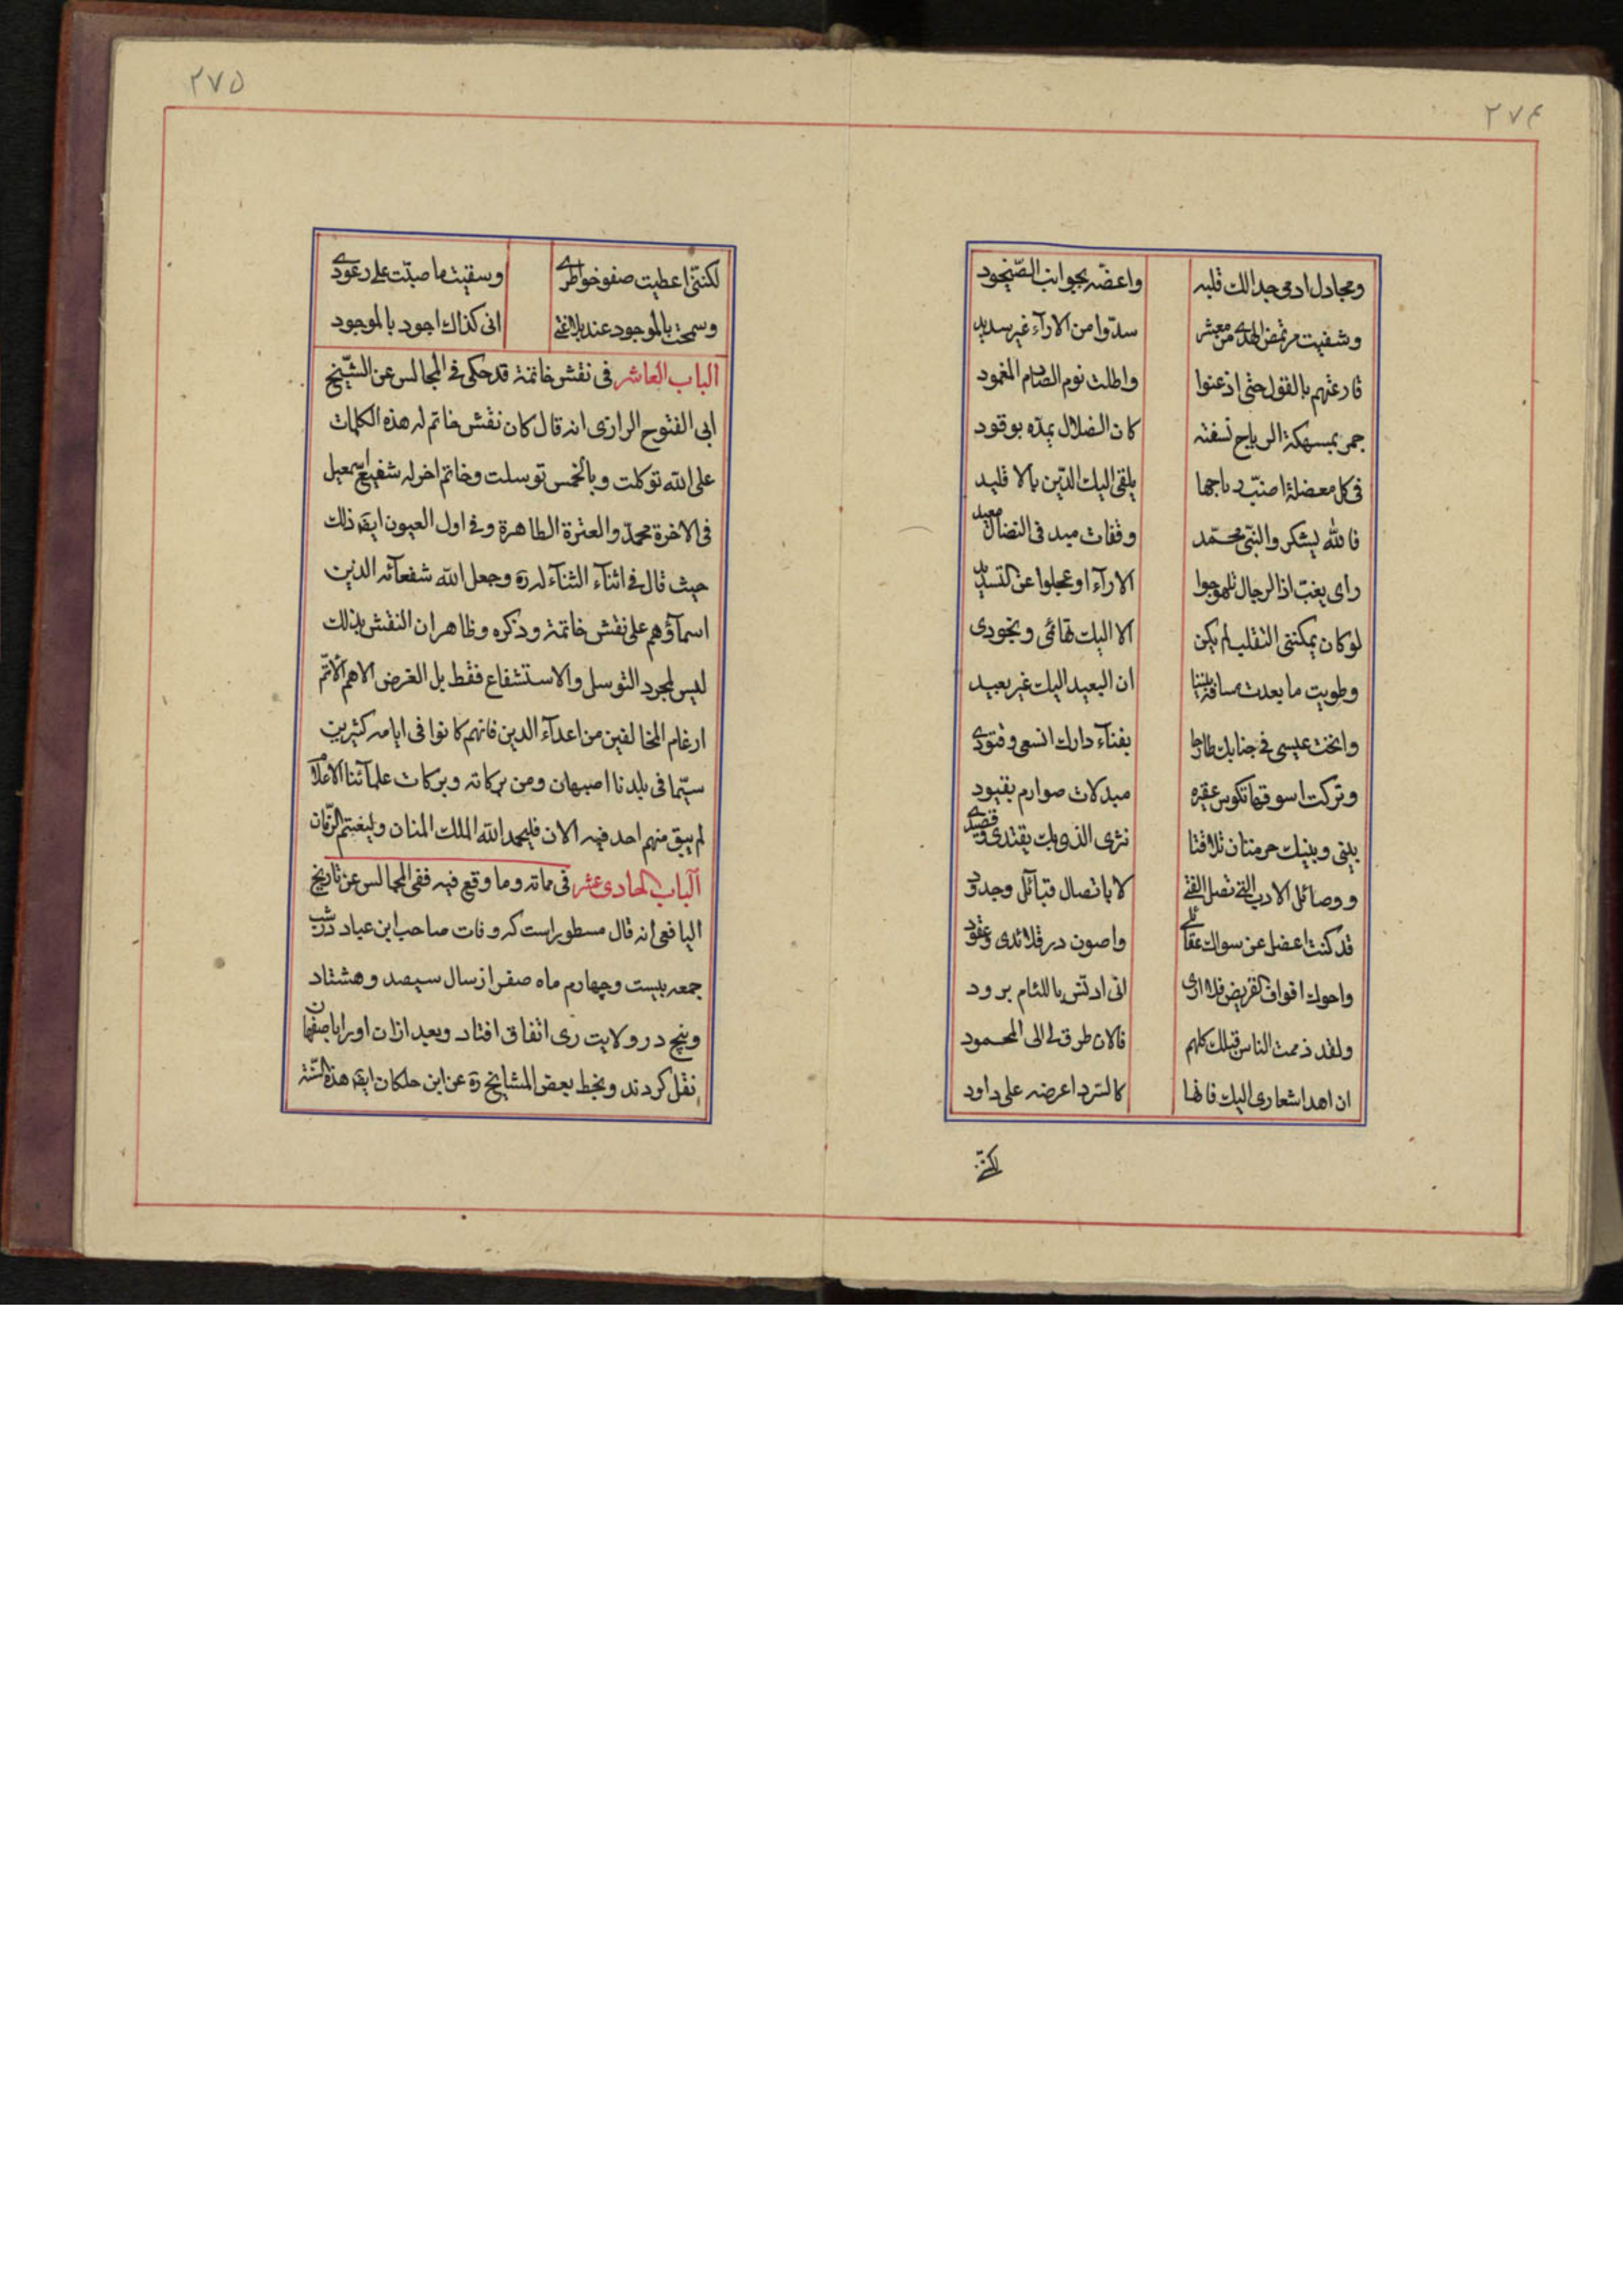 ۲۷۴
ومجادل ادمی جدالك قلبه واعضه بجوانب الصیخود
وشفیت مرتمض الهدی من معشر سدّوا من الارآء غیر سدید
قارعتهم بالقول حتی اذعنوا واطلت نوم الصارم المغمود
جمر بمسهكة الریاح نسفته كان الضلال یمدّه بوقود
فی كل معضلة اضبّ رتاجها یلقی الیك الدّین بالاقلید
فالله یشكر والنبی محمّد وقفات مبد فی النضال معید
رای یغبّ اذا الرجال تلهوجوا الارآء او عجلوا عن التسدید
لو كان یمكننی التقلب لم یكن الا الیك تهائمی ونجودی
وطویت ما بعدت مسافة بیننا ان البعید الیك غیر بعید
وانخت عیسی فی جنابك طارحا بفنآء دارك انسعی وقتودی
وتركت اسوقها تكوس عقیره مبدلات صوارم بقیود
بینی وبینك حرمتان تلاقتا نثری الذی بك یقتدی وقصیدی
ووصائل الادب التی تصل الفتی لا باتصال قبآئل وجدود
قد كنت اعضل عن سواك عقائلی واصون در قلائدی وعقودی
واحوك افواف القریض فلا اری انی ادنّس باللئام برود
ولقد ذممت الناس قبلك كلهم فالان طرق لی الی المحمود
ان اهد اشعاری الیك فانها كالسرد اعرضه علی داود
لكننی
۲۷۵
لكننی اعطیت صفو خواطری وسقیت ما صبّت علی رعودی
وسمحت بالموجود عند بلاغتی انی كذاك اجود بالموجود
الباب العاشر فی نقش خاتمة قد حكی فی المجالس عن الشّیخ
ابی الفتوح الرازی انه قال كان نقش خاتم له هذه الكلمات
علی الله توكلت وبالخمس توسلت وخاتم اخر له شفیع اسمعیل
فی الاخرة محمدّ والعترة الطاهرة وفی اول العیون ایضه ذلك
حیث قال فی اثنآء الثنآء له ره وجعل الله شفعآئه الذین
اسمآؤهم علی نقش خاتمة وذكره وظاهر ان النقش بذلك
لیس لمجرد التوسل والاستشفاع فقط بل الغرض الاهم الاتمّ
ارغام المخالفین من اعدآء الدین فانهم كانوا فی ایامه كثیرین
سیّما فی بلدنا اصبهان ومن بركاته وبركات علمآئنا الاعلام
لم یبق منهم احد فیه الان فلیحمد الله الملك المنان ولیغتنم الزّمان
الباب الحادی عشر فی مماته وما وقع فیه ففی المجالس عن تاریخ
الیافعی انه قال مسطور است كه وفات صاحب ابن عباد در شب
جمعه بیست وچهارم ماه صفر از سال سیصد وهشتاد
وپنج در ولایت ری اتفاق افتاد وبعد ازان اورا باصفهان
نقل كردند وبخط بعض المشایخ ره عن ابن خلكان ایضه هذه السّنة